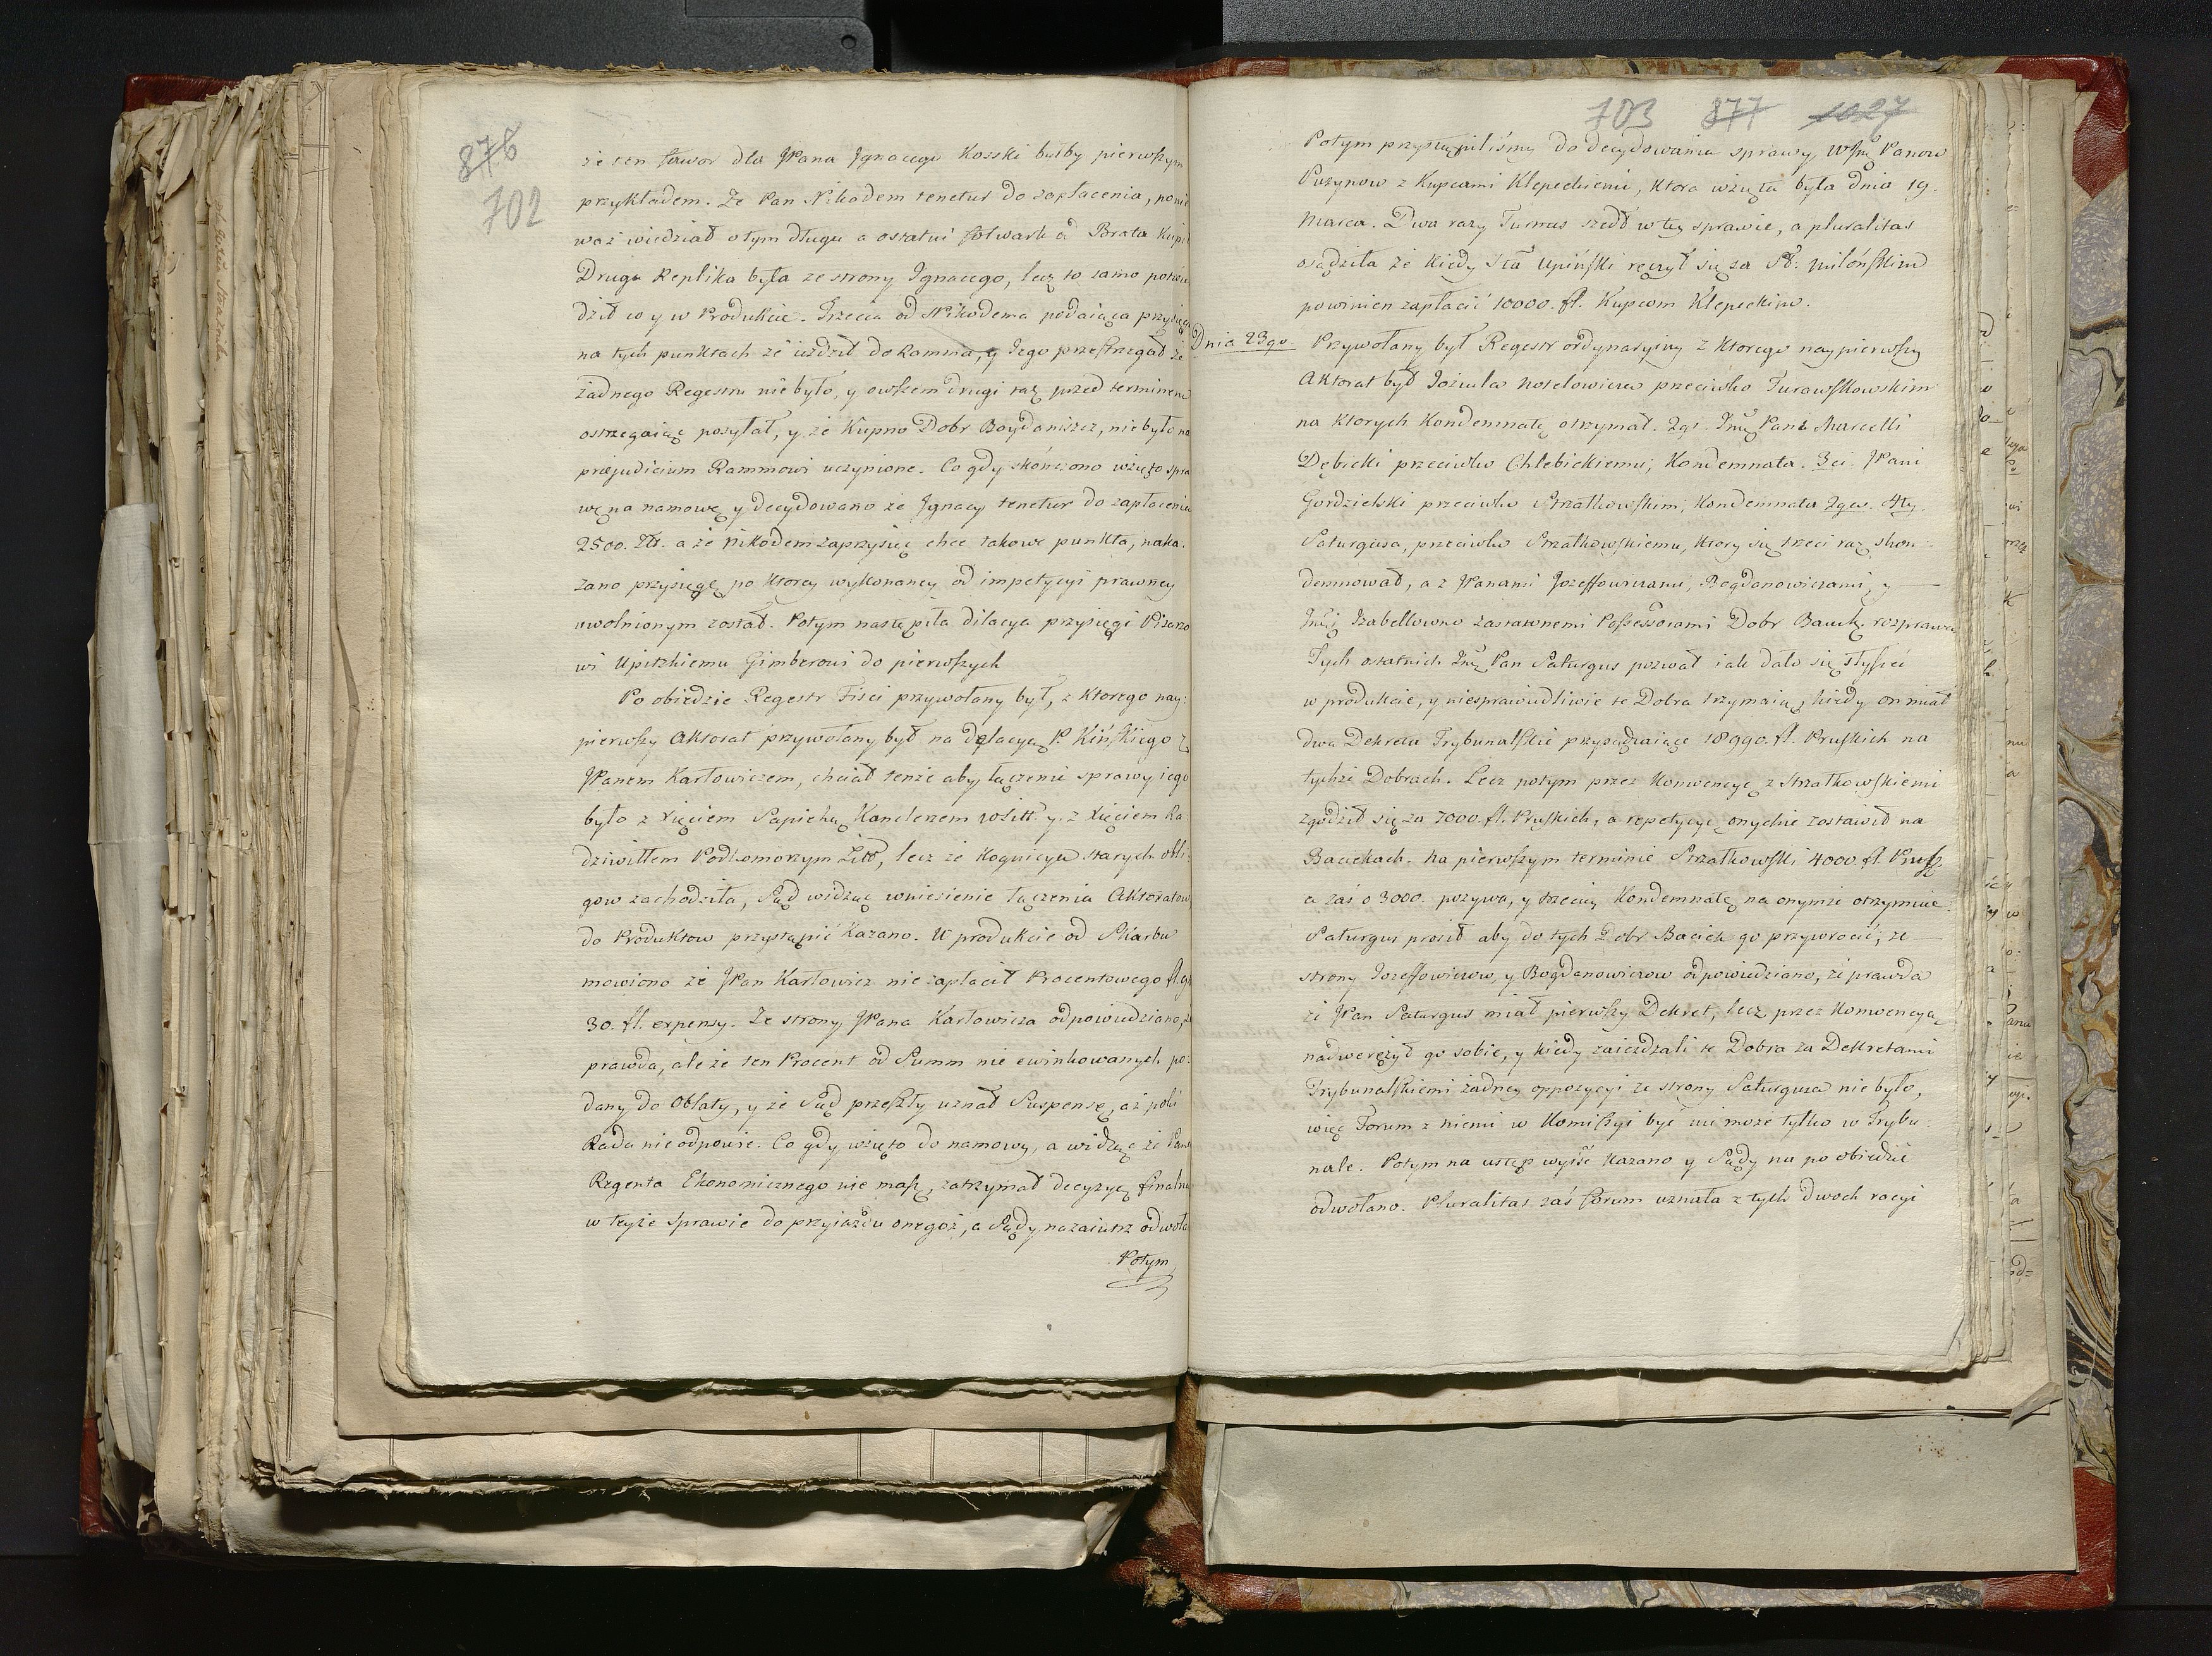 876
702
że ten fawor dla JPana Jgnacego Kosski byłby pierwszym
przykładem. Że Pan Nikodem tenetur do zapłacenia, ponie
waż wiedział o tym długu a ostatni folwark od Brata kupił
Druga Replika była ze strony Ignacego, lecz to samo potwier
dził co y w Produkcie. Trzecia od Nikodema podaiąca przysięgę
na tych punktach że ieździł do Ramma, y Jego przestrzegał że
żadnego Regestru nie było, y owszem drugi raz przed terminem
ostrzegaiąc posyłał, y że Kupno Dobr Boydaniszcz, nie było na
præjudicium Rammowi uczynione. Co gdy skończono wzięto spra
wę na namowę y decydowano że Jgnacy tenetur do zapłacenia
2500. Złł. a że Nikodem zaprzysiąc chce takowe punkta, naka-
zano przysięgę, po ktorey wykonaney od impetycyi prawney
uwolnionym został. Potym nastąpiła dilacya przysięgi Pisarzo
wi Upitzkiemu Gimberowi do pierwszych
Po obiedzie Regestr Fisci przywołany był, z ktorego nay:
pierwszy Aktorat przywołany był na delacyą P. Kińskiego z
JPanem Karłowiczem, chciał tenże aby łączenie sprawy iego
było z xięciem Sapiehą Kanclerzem WŁitt. y. z Xięciem Ra
dziwiłłem Podkomorzym Litt, lecz że kognicya starych obli:
gow zachodziła, Sąd widząc wniesienie łączenia Aktoratow
do Produktow przystąpić kazano. W produkcie od Skarbu
mowiono że JPan Karłowicz nie zapłacił Procentowego fl. gr
30. fl. expensy. Ze strony JPana Karłowicza odpowiedziano, że
prawda, ale że ten Procent od Summ nie ewinkowanych po:
dany do Oblaty, y że Sąd przeszły uznał Suspensę, aż poki
Rada nie odpowie. Co gdy wzięto do namowy, a widząc że Pana
Regenta Ekonomicznego nie masz, zatrzymał decyzyę finalną
w teyże sprawie do przyiazdu onegoż, a Sądy nazaiutrz odwoła
Potym
703 877 1027
Potym przystąpiliśmy do decydowania sprawy, WJmć Panow
Puzynow z Kupcami Klepeckiemi, ktora wzięta była dnia 19.
Marca. Dwa razy Turnus szedł w tey sprawie, a pluralitas
osądziła że kiedy Stta Upiński ręczył się za Sł. Milońskim
powinien zapłacić 10000. fl. Kupcom Klepeckim.
Dnia 23go
Przywołany był Regestr ordynaryiny z ktorego naypierwszy
Aktorat był Joźwla Noselowicza przeciwko Turawskowskim
na ktorych Kondemnatę otrzymał. 2gi. Jmć Pana Marcelli
Dębicki przeciwko Chlebickiemu, Kondemnata. 3ci. JPani
Gordzielski przeciwko Strzałkowskim, Kondemnata 2ga. 4ty.
Saturgusa, przeciwko Strzałkowskiemu, ktory się trzeci raz skon-
demnował, a z JPanami Jozeffowiczami, Bogdanowiczami, y
Jmć Izabellowno zastawnemi Possessorami Dobr Bacick. rozprawa
Tych ostatnich Jmć Pan Saturgus pozwał iak dało się słyszeć
w produkcie, y niesprawiedliwie te Dobra trzymaią, kiedy on miał
dwa Dekreta Trybunalskie przysądzaiące 18990. fl. Pruskich na
tychże Dobrach. Lecz potym przez Konwencyę z Strzałkowskiemi
zgodził się za 7000. fl. Pruskich, a repetycyę onychże zostawił na
Bacickach. Na pierwszym terminie Strzałkowski 4000. fl. Prusk.
a zaś o 3000. pozywa, y trzecią Kondemnatę na onymże otrzymuie.
Saturgus prosił aby do tych Dobr Bacick go przywrocić; ze
strony Jozeffowiczow, y Bogdanowiczow odpowiedziano, że prawda
że JPan Saturgus miał pierwszy Dekret, lecz przez Konwencyą
nadwerężył go sobie, y kiedy zaieżdżali te Dobra za Dekretami
Trybunalskiemi żadney oppozycyi ze strony Saturgusa nie było,
więc Forum z niemi w Komissyi być nie może tylko w Trybu-
nale. Potym na ustęp wyiść kazano y Sądy na po obiedzie
odwołano. Pluralitas zaś forum uznała z tych dwoch racyi